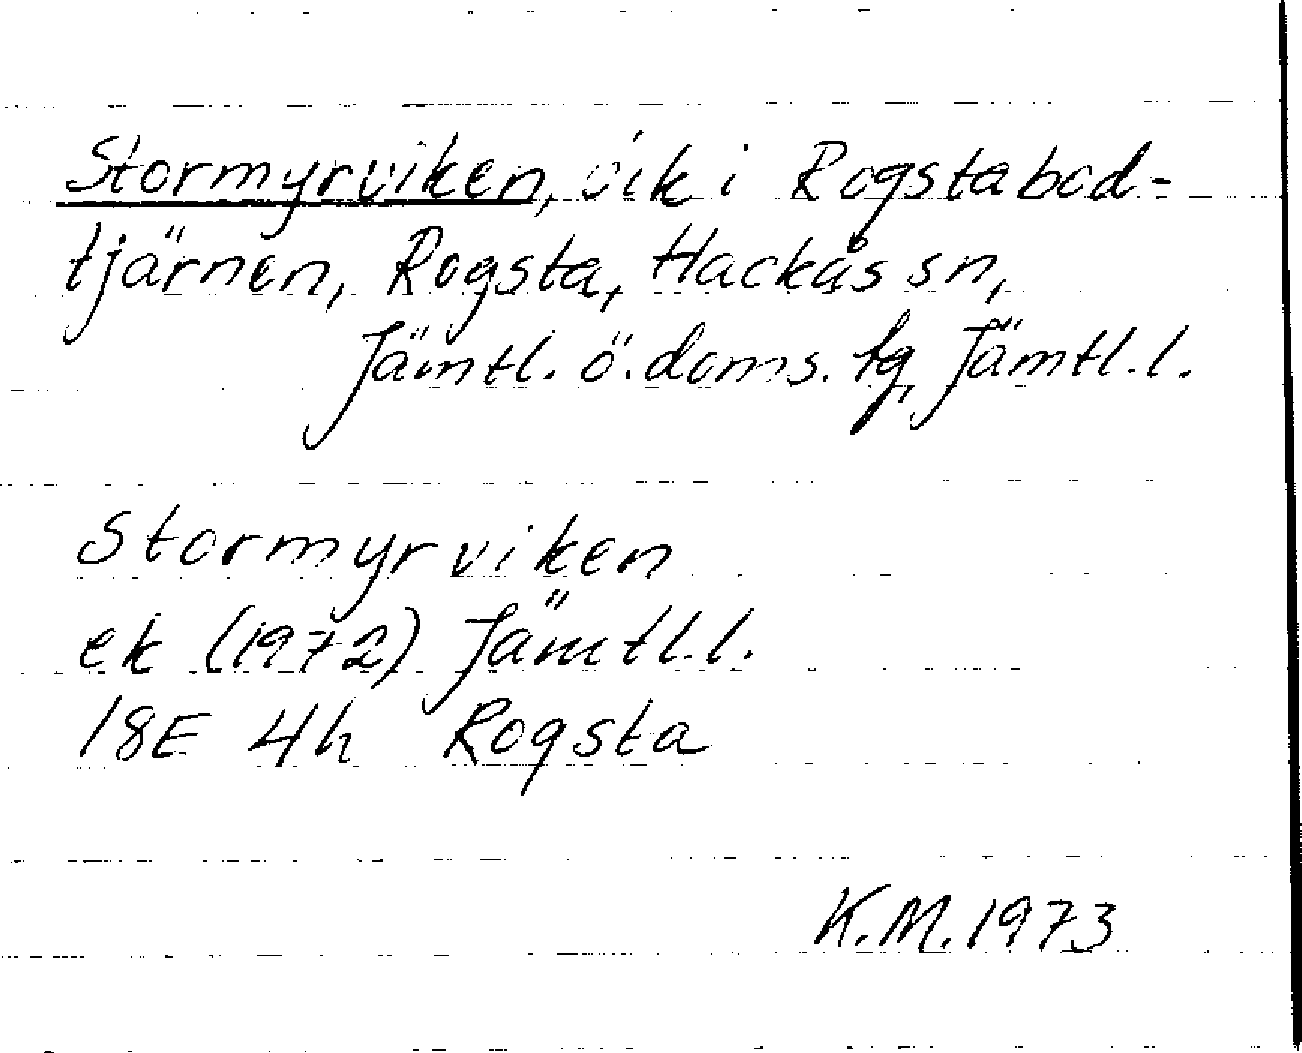 Stormyrviken, vik i Rogstabod-
tjärnen, Rogsta, Hackås sn,
Jämtl. ö. doms. tg, Jämtl. l.
Stormyrviken
ek (1972) Jämtl. l.
18E 4h Rogsta
K.M. 1973